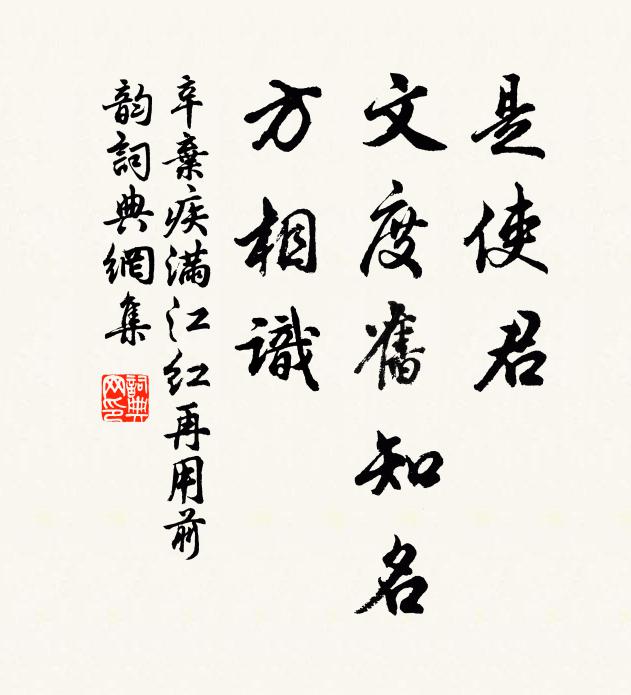 是使君
文度舊知名
方相識
辛棄疾滿江紅再用前
韵詞典網集
詞典
网印